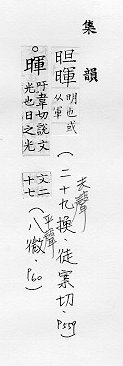 集韻
暉明也或从軍(二十九換·徒案切·P559)
去聲
。暉吁韋切說文光也日之光文二十七(八微·P60)
平聲